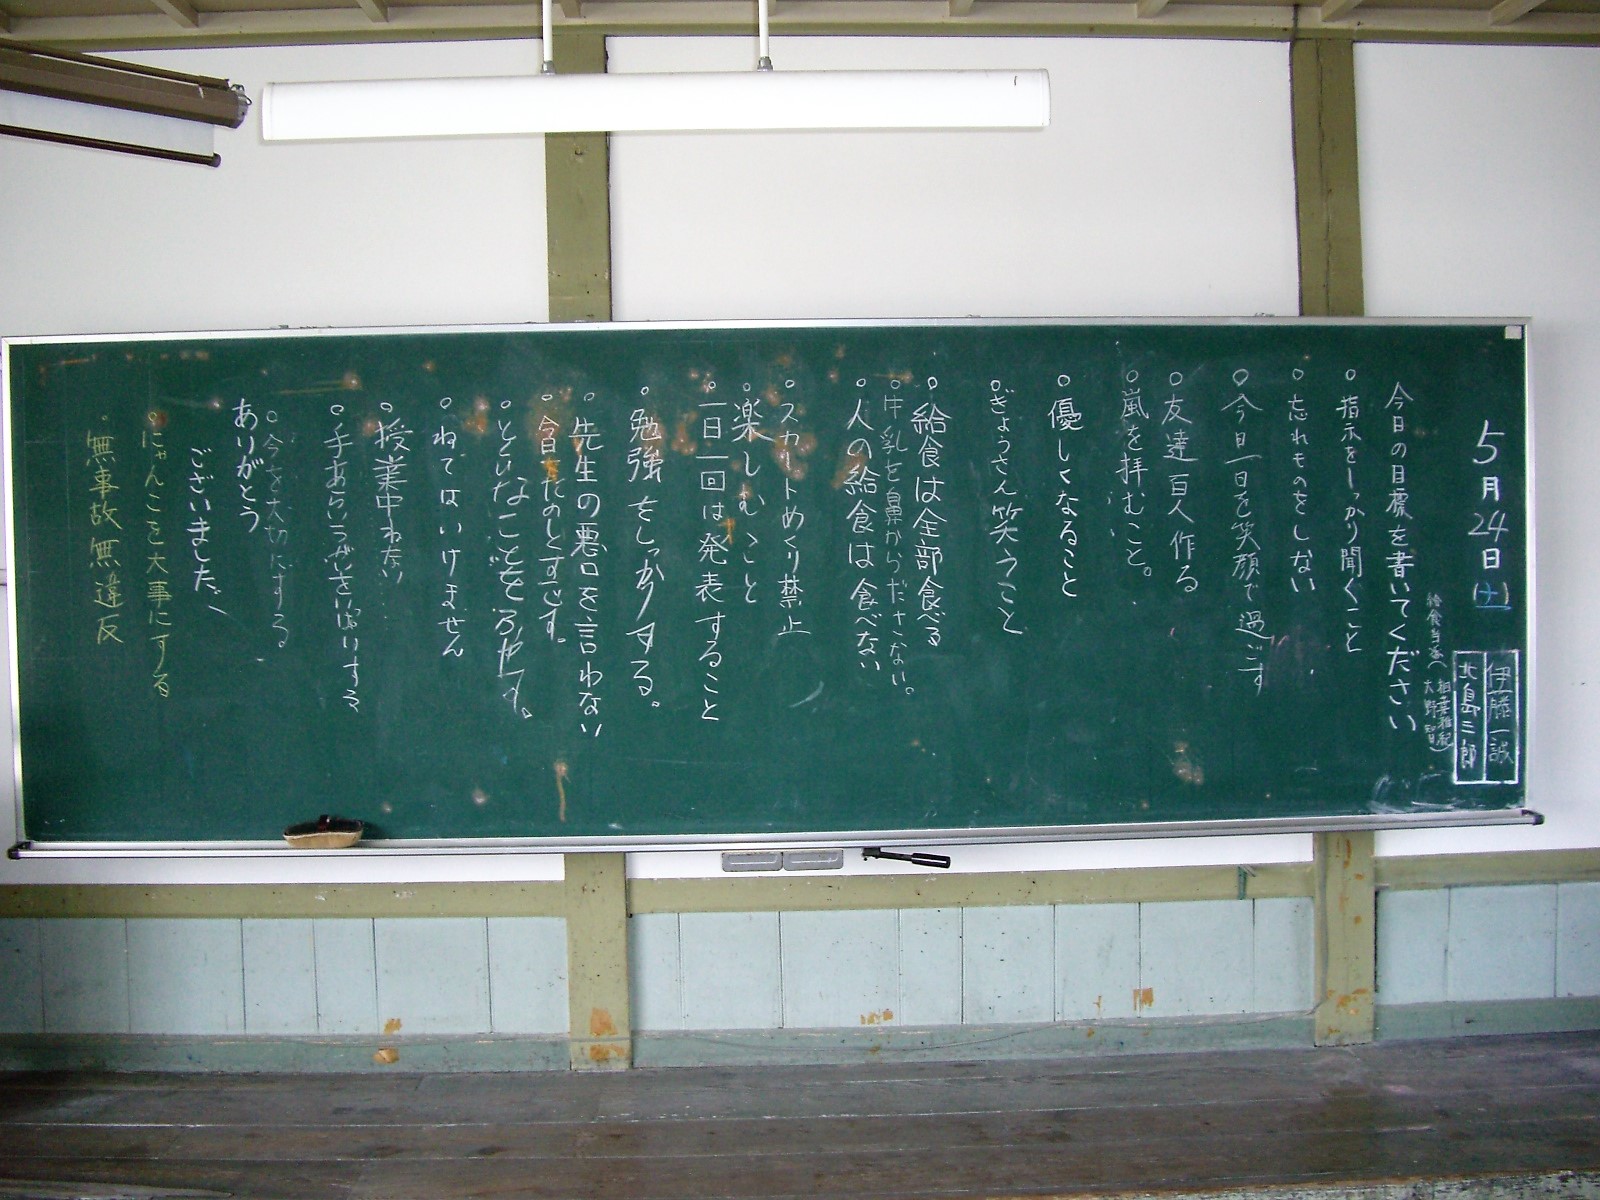 5月24日(土)
伊藤一誠
北島三郎
給食当番(相葉雅紀
大野智)
今日の目標を書いてください
○指示をしっかり聞くこと
○忘れものをしない
○今日一日を笑顔で過ごす
○友達百人作る
○嵐を拝むこと。
○優しくなること
○ぎょうさん笑うこと
○給食は全部食べる
○牛乳を鼻からださない。
○人の給食は食べない
○スカートめくり禁止
○楽しむこと
○一日一回は発表すること
○勉強をしっかりする。
○先生の悪口を言わない
○今日をたのしくすごす。
○ねてはいけません
○授業中ねない
○手あらうがいをいっぱいする
○今を大切にする
ありがとう
ございました。
○にゃんこを大事にする
○無事故無違反